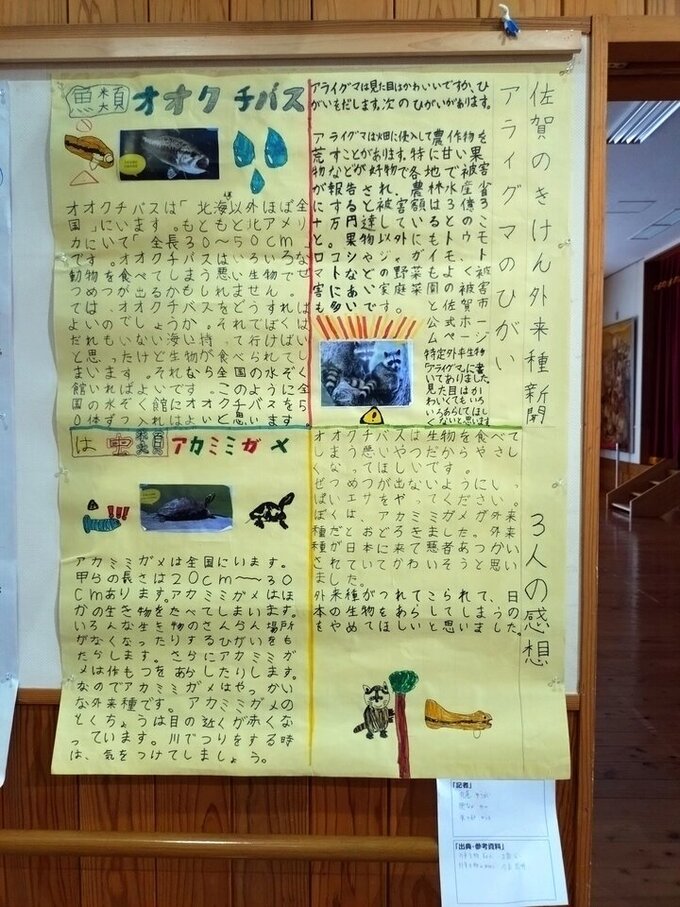 佐賀のきけん外来種新聞
アライグマのひがい
アライグマは見た目はかわいいですが、ひ
がいをだします。次のひがいがあります。
アライグマは畑に侵入して農作物を
荒すことがあります。特に甘い果
物などが好物で各地で被害
が報告され、農林水産省
にすると被害額は3億3
十万円達しているとのこ
と。果物以外にもトウモ
ロコシやジャガイモ、ト
マトなどの野菜もよく被
害にあい家庭菜園の被害
も多いです。
と佐賀市
公式ホー
ムページ
特定外来生物
アライグマに書
いてありました
見た目はか
わいくてもいろ
いろあらしてほし
くないと思います
魚類 オオクチバス
オオクチバスは「北海以外ほぼ全
国」にいます。もともと北アメリ
カにいて「全長30〜50cm」
です。オオクチバスはいろいろな
動物を食べてしまう悪い生物でぜ
つめつが出るかもしれません。
では、オオクチバスをどうすれば
よいのでしょうか。それでぼくは
だれもいない海い持って行けばい
と思ったけど生物が食べられてし
まいます。それなら全国の水ぞく
館いればよいです。このように全
国の水ぞく館にオオクチバスを5
0体ずつ入れはよいと思います
は虫類 アカミミガメ
アカミミガメは全国にいます。
甲らの長さは20cm〜30
cmあります。アカミミガメはほ
かの生き物をたべてしまいます。
いろんな生き物のさんらん場所
がなくなったりするひがいをも
たらします。さらにアカミミガ
メは作もつをあらしたりします。
なのでアカミミガメはやっかい
な外来種です。アカミミガメの
とくちょうは目の近くが赤くな
っています。川でつりをする時
は、気をつけてしましょう。
3人の感想
オオクチバスは生物を食べて
しまう悪いやつだからやさし
くなってほしいです。
ぜつめつが出ないようにいっ
ぱいエサをやってください。
ぼくは、アカミミガメが外来
種だとおどろきました。外来
種が日本に来て悪者あつかい
されていてかわいそうと思い
ました。
外来種がつれてこられて、日
本の生物をあらしてしまうの
をやめてほしいと思いました。
「記者」
「出典・参考資料」